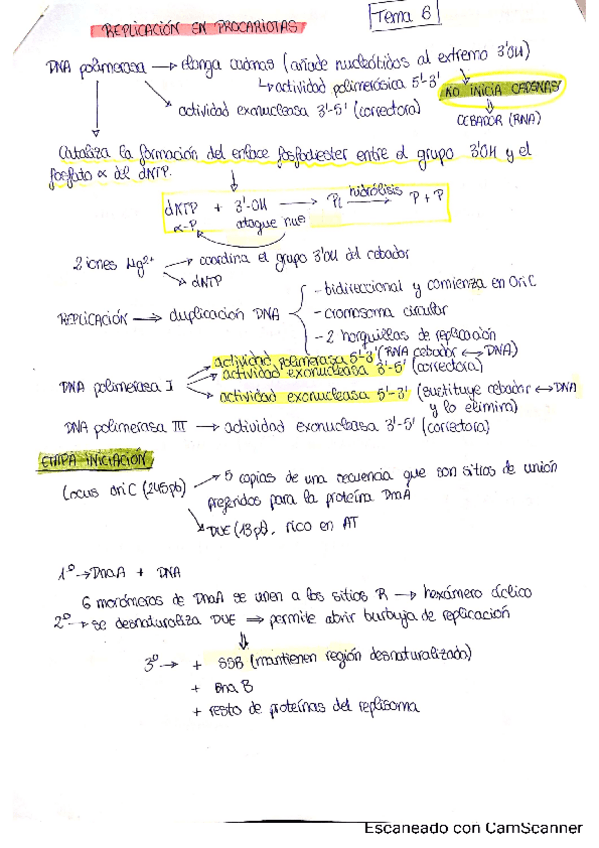 Tema 6
REPLICACIÓN EN PROCARIOTAS
DNA polimerasa → elonga cadenas (añade nucleótidos al extremo 3'OH)
↳ actividad polimerásica 5'-3'
NO INICIA CADENAS
↘ actividad exonucleasa 3'-5' (correctora)
CEBADOR (RNA)
Cataliza la formación del enlace fosfodiester entre el grupo 3'OH y el
fosfato α del dNTP.
dNTP + 3'-OH → PPi hidrólisis → P + P
α-P ataque nuc
2 iones Mg2+ → coordina el grupo 3'OH del cebador
→ dNTP
REPLICACIÓN → duplicación DNA
- bidireccional y comienza en OriC
- cromosoma circular
- 2 horquillas de replicación
DNA polimerasa I
actividad polimerasa 5'-3' (RNA cebador ↔ DNA)
actividad exonucleasa 3'-5' (correctora)
actividad exonucleasa 5'-3' (sustituye cebador ↔ DNA
y lo elimina)
DNA polimerasa III → actividad exonucleasa 3'-5' (correctora)
ETAPA INICIACIÓN
Locus oriC (245pb) → 5 copias de una secuencia que son sitios de unión
preferidos para la proteína DnaA
↘ DUE (13pb), rico en AT
1º → DnaA + DNA
6 monómeros de DnaA se unen a los sitios R → hexámero cíclico
2º → se desnaturaliza DUE ⇒ permite abrir burbuja de replicación
3º → + SSB (mantienen región desnaturalizada)
+ Dna B
+ resto de proteínas del replisoma
Escaneado con CamScanner